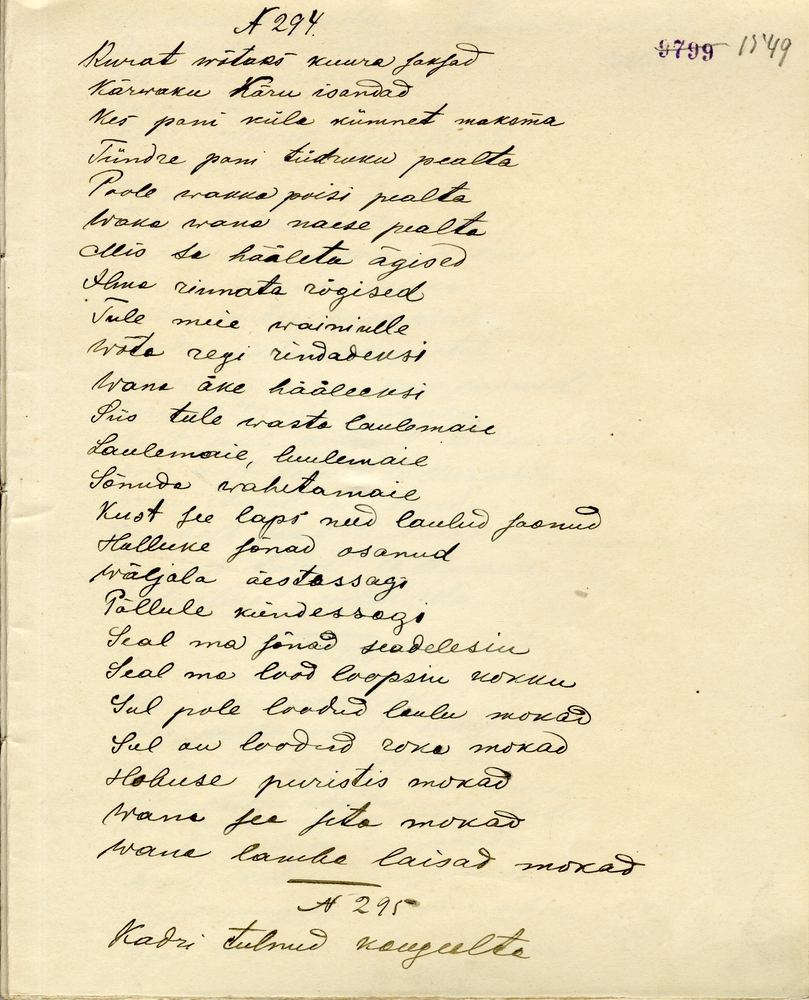 N 294.
9799 1549
Kurat wõtaks kuura saksad
Kärwaku Käru isandad
Kes pani küla kümnet maksma
Tündre pani tüdruku pealta
Poole wakka poisi pealta
Waka wana naese pealta
Mis sa hääleta ägised
Ilma rinnata rögised
Tule meie wainiulle
Wõta regi rindadeksi
Wana äke hääleeksi
Siis tule wasta laulemaie
Laulemaie, luulemaie
Sõnuda wahetamaie
Kust see laps need laulud saanud
Halluke sõnad osanud
Wäljala äestassagi
Põllule kündessagi
Seal ma sõnad seadelesin
Seal ma lood loopsin kokku
Sul pole loodud laulu mokad
Sul on loodud roka mokad
Hobuse puristis mokad
Wana see sita mokad
Wana lamba laisad mokad
N 295
Kadri tulnud kaugeelta